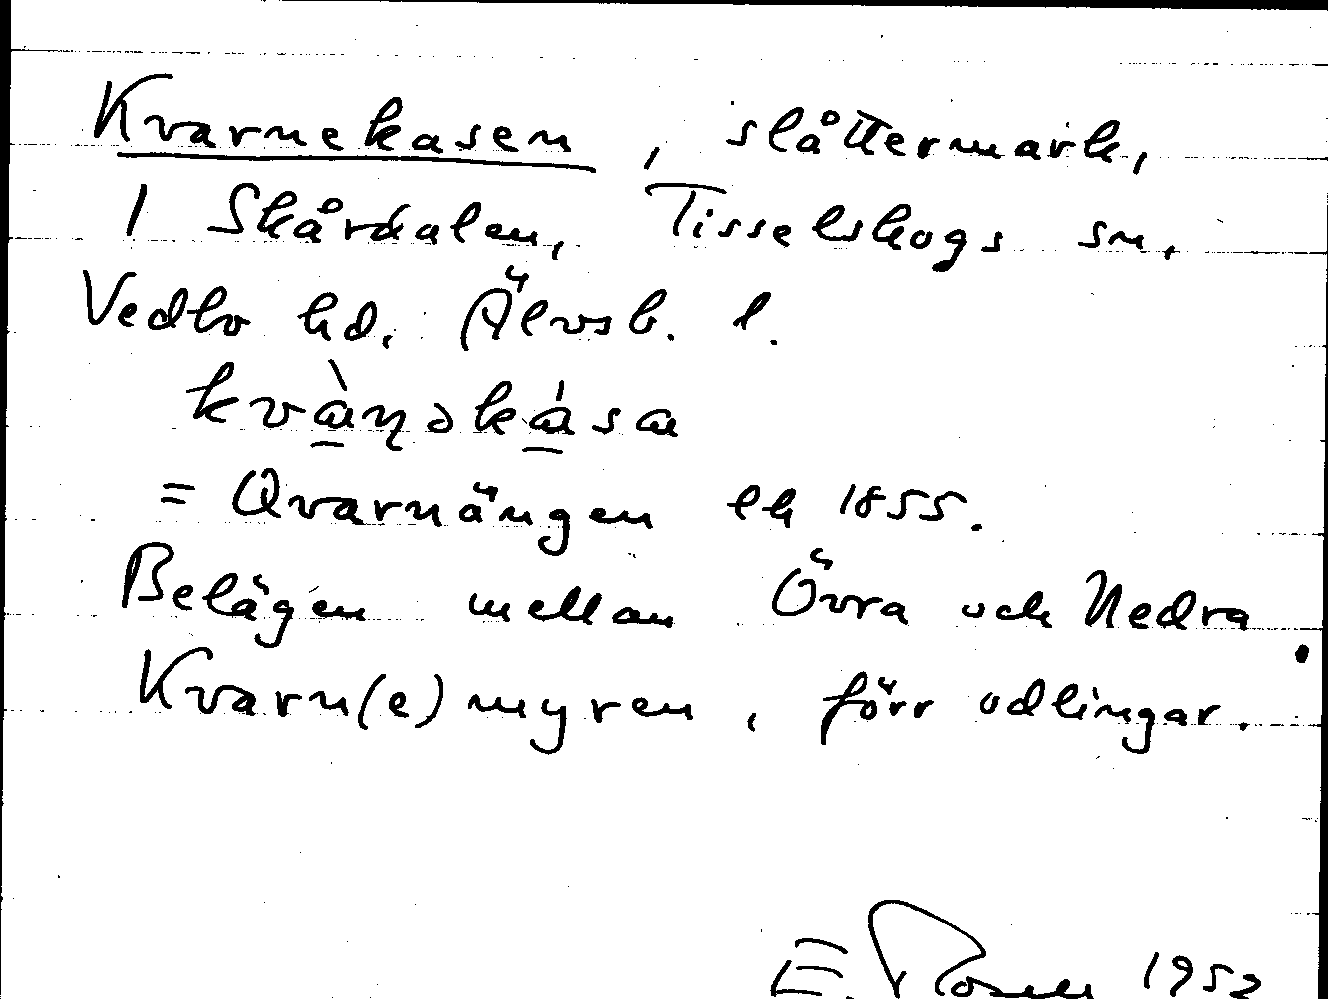 Kvarnekasen, slåttermark,
1 Skårdalen, Tisselskogs sn,
Vedbo hd, Älvsb. l.
kvàɳəkása
= Qvarnängen ek 1855.
Belägen mellan Övra och Nedra
Kvarn(e)myren, förr odlingar.
E. Rosell 1952